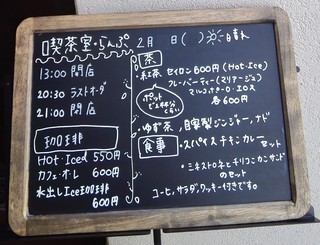 喫茶室・らんぷ
2月 日( ) 晴れ
13:00 開店
20:30 ラストオーダ
21:00 閉店
珈琲
Hot・Iced 550円
カフェ・オ・レ 600円
水出しIce珈琲 600円
茶
・紅茶 セイロン 600円 (Hot・Ice)
フレーバーティー(マリアージュ)
マルコポーロ・エロス
各600円
ポット
・ゆず茶、自家製ジンジャー
食事
・スパイスチキンカレーセット
・ミネストロネとチリコンカンサンドのセット
コーヒ、サラダ、クッキー付きです。